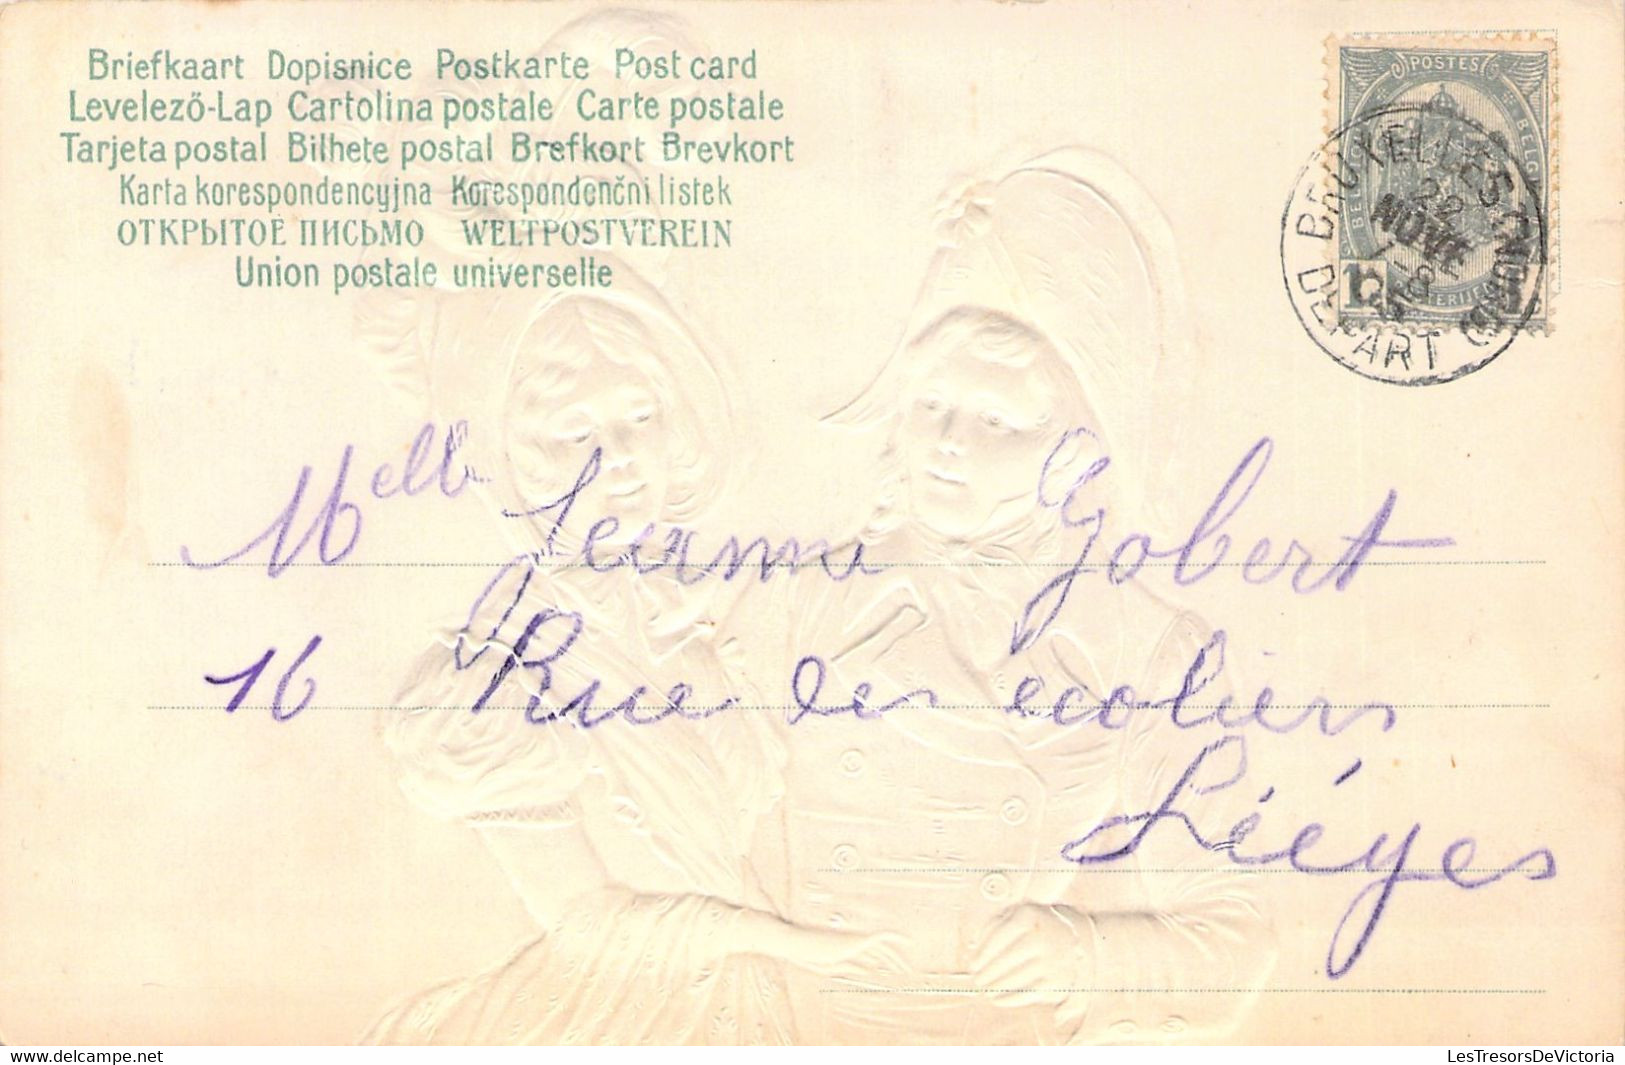 Briefkaart Dopisnice Postkarte Post card
Levelező-Lap Cartolina postale Carte postale
Tarjeta postal Bilhete postal Brefkort Brevkort
Karta korespondencyjna Korespondenční listek
ОТКРЫТОЕ ПИСЬМО WELTPOSTVEREIN
Union postale universelle
POSTES
BRUXELLES
NOVE
DEPART
Melle Gobert
16 Rue des ecoliers
Liéges
LesTresorsDeVictoria
www.delcampe.net